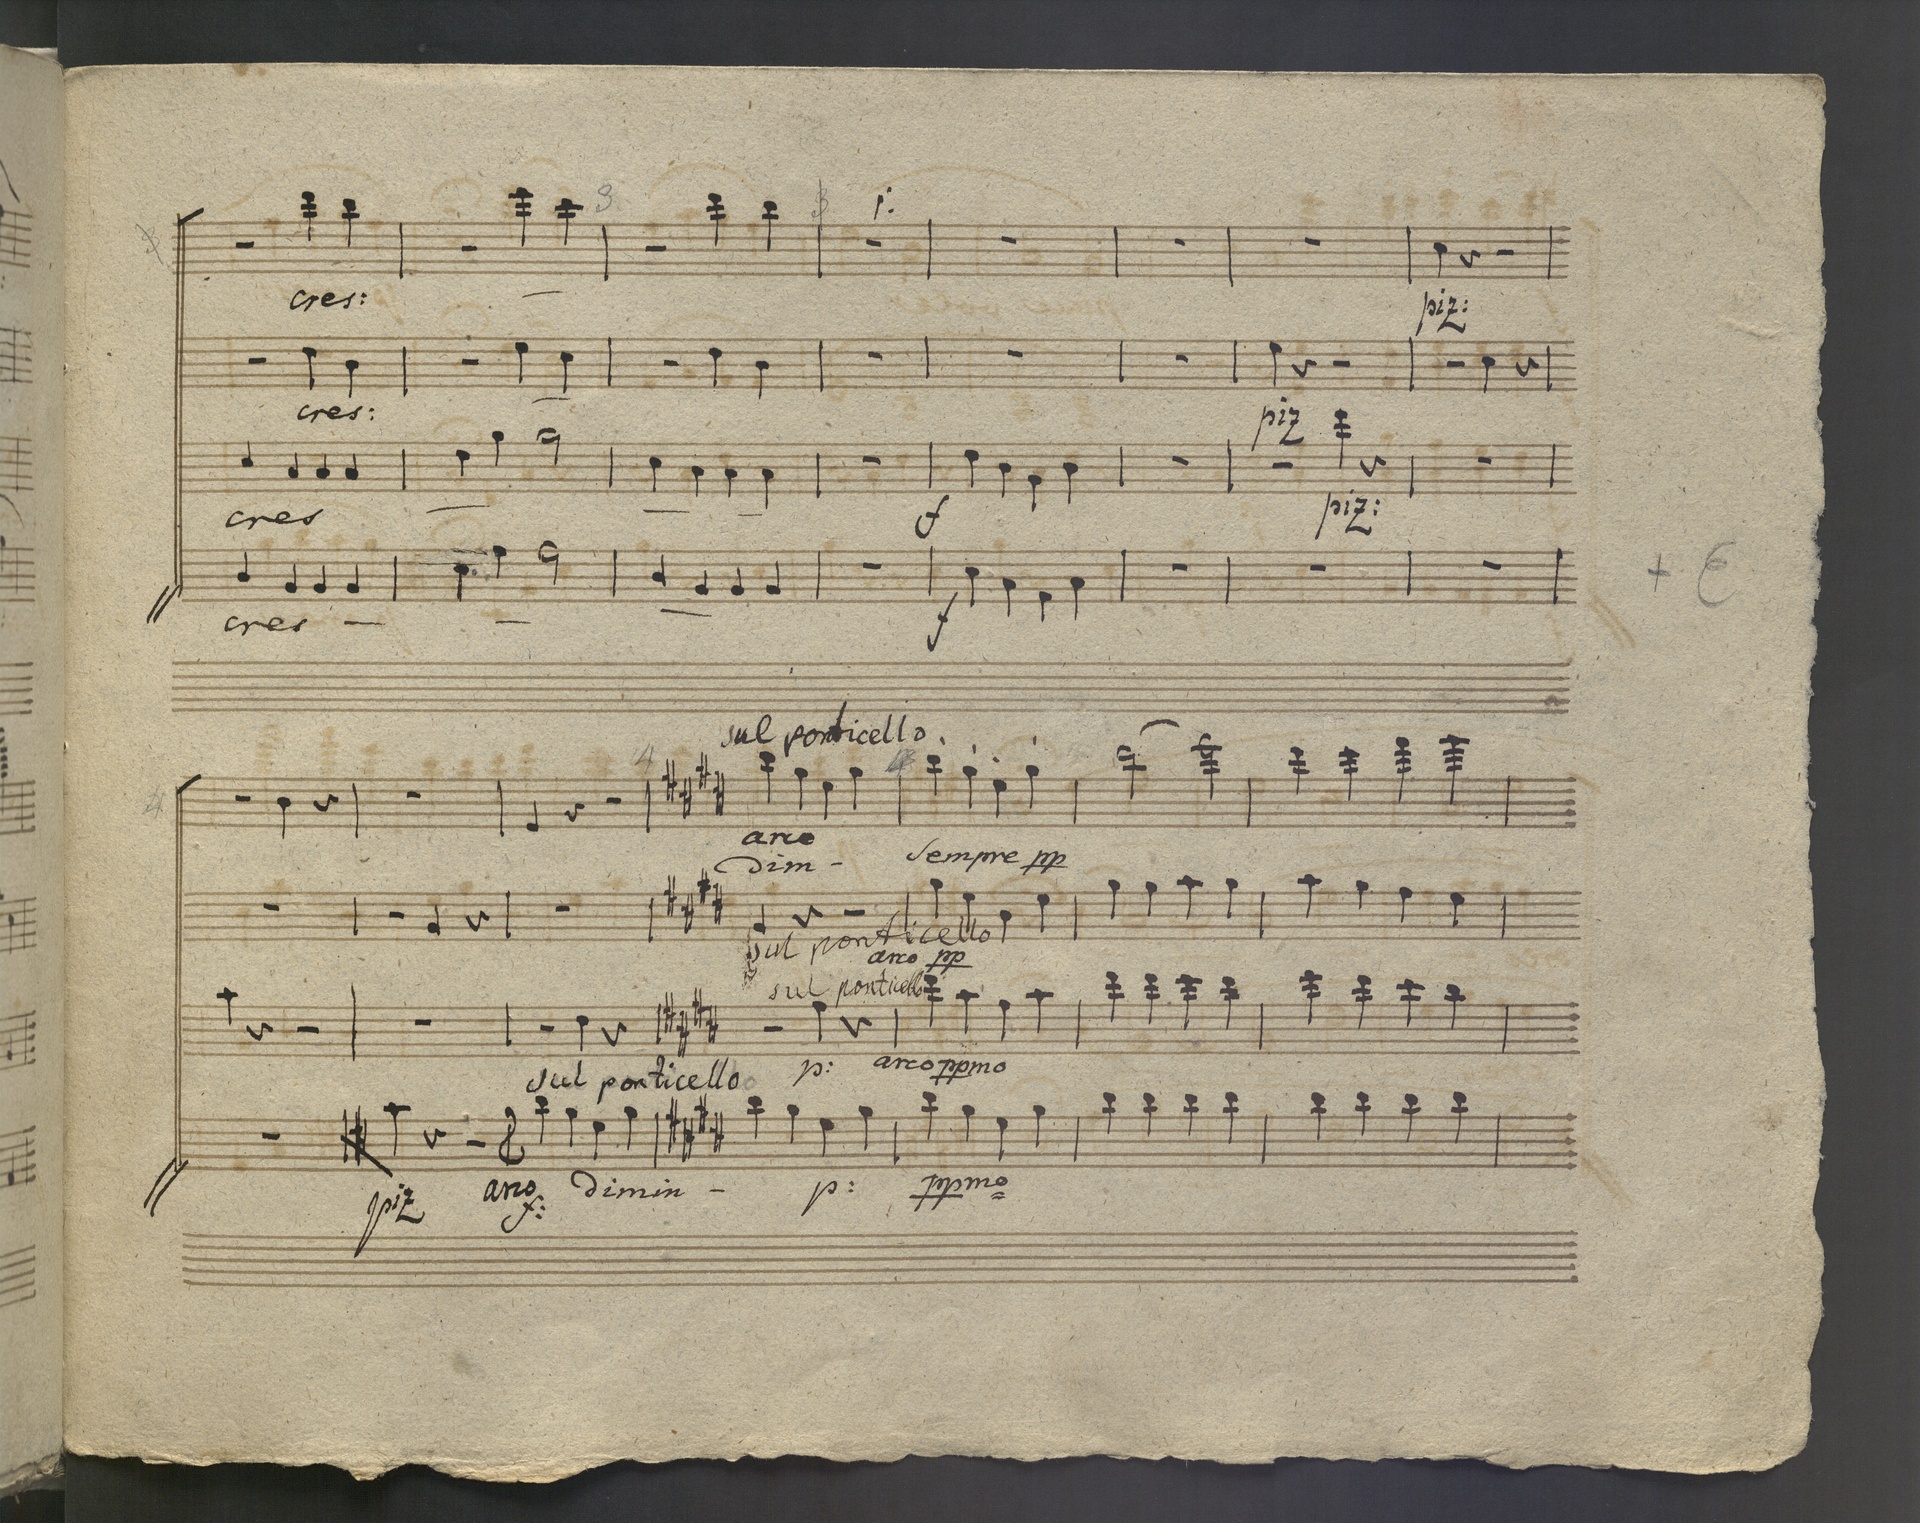 3 3 p:
cres: piz:
cres: piz
cres f piz:
cres f
+ E
sul ponticello
4
arco
Dim - Sempre pp
sul ponticello
arco pp
sul ponticello
p: arco ppmo
sul ponticello
piz arco Dimin - p: ppmo
f: